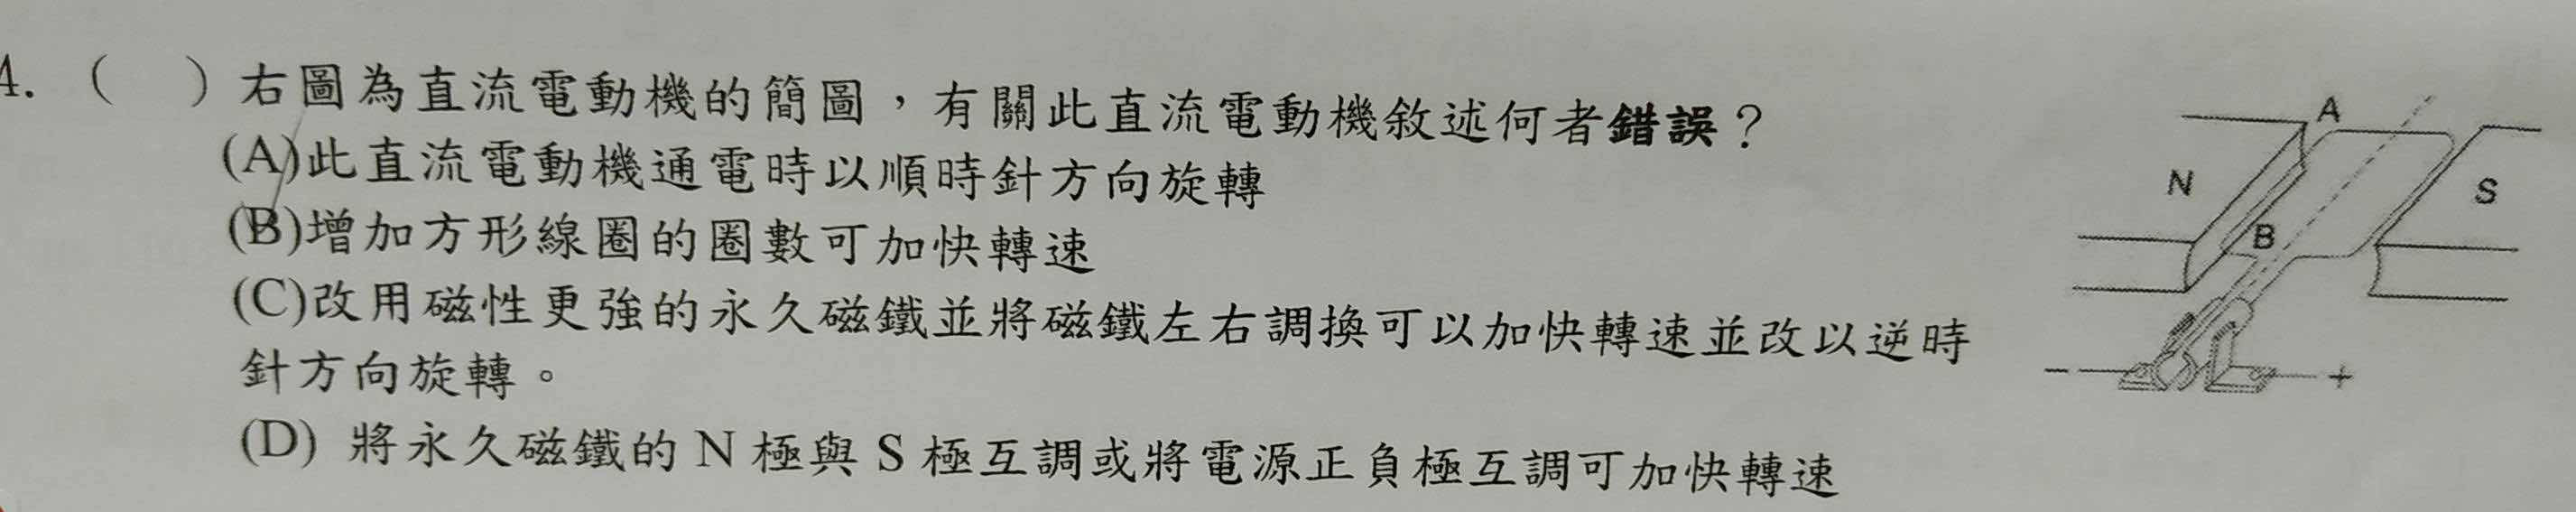 4. (    ) 右圖為直流電動機的簡圖，有關此直流電動機敘述何者錯誤？
(A)此直流電動機通電時以順時針方向旋轉
(B)增加方形線圈的圈數可加快轉速
(C)改用磁性更強的永久磁鐵並將磁鐵左右調換可以加快轉速並改以逆時
針方向旋轉。
(D) 將永久磁鐵的 N 極與 S 極互調或將電源正負極互調可加快轉速
A
N
S
B
− +